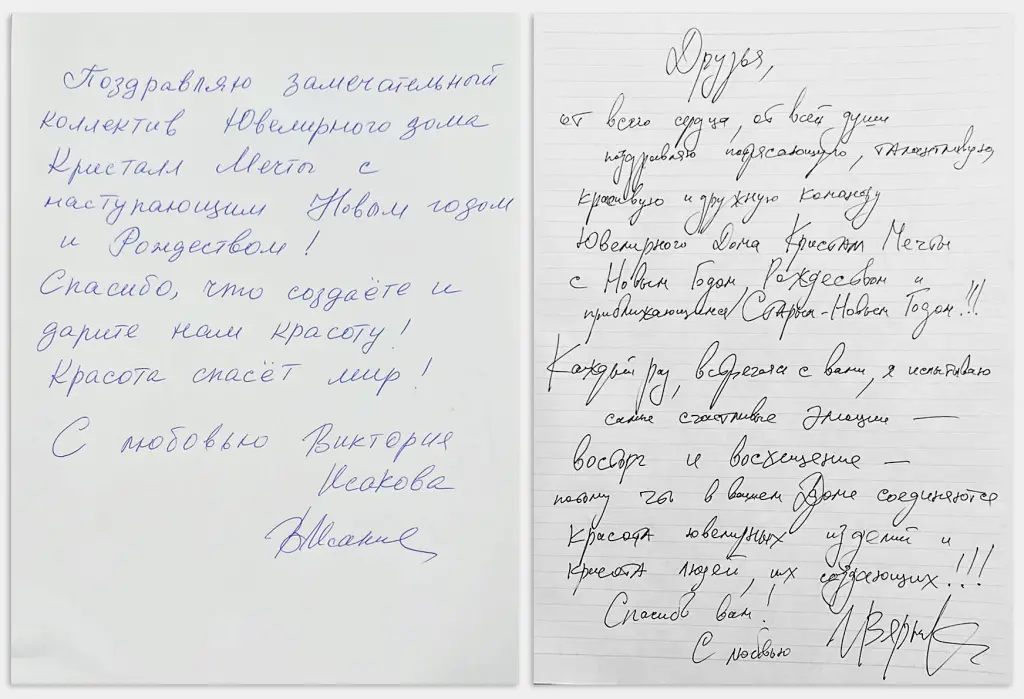 Поздравляю замечательный
коллектив Ювелирного дома
Кристалл Мечты с
наступающим Новым годом
и Рождеством!
Спасибо, что создаёте и
дарите нам красоту!
Красота спасёт мир!
С любовью Виктория
Исакова
Друзья,
от всего сердца, от всей души
поздравляю потрясающую, талантливую,
красивую и дружную команду
Ювелирного Дома Кристалл Мечты
с Новым Годом, Рождеством и
приближающимся Старым-Новым Годом!!!
Каждый раз, встречаясь с вами, я испытываю
самые счастливые эмоции —
восторг и восхищение —
потому что в вашем Доме соединяются
красота ювелирных изделий и
красота людей, их создающих!!!
Спасибо вам!
С любовью